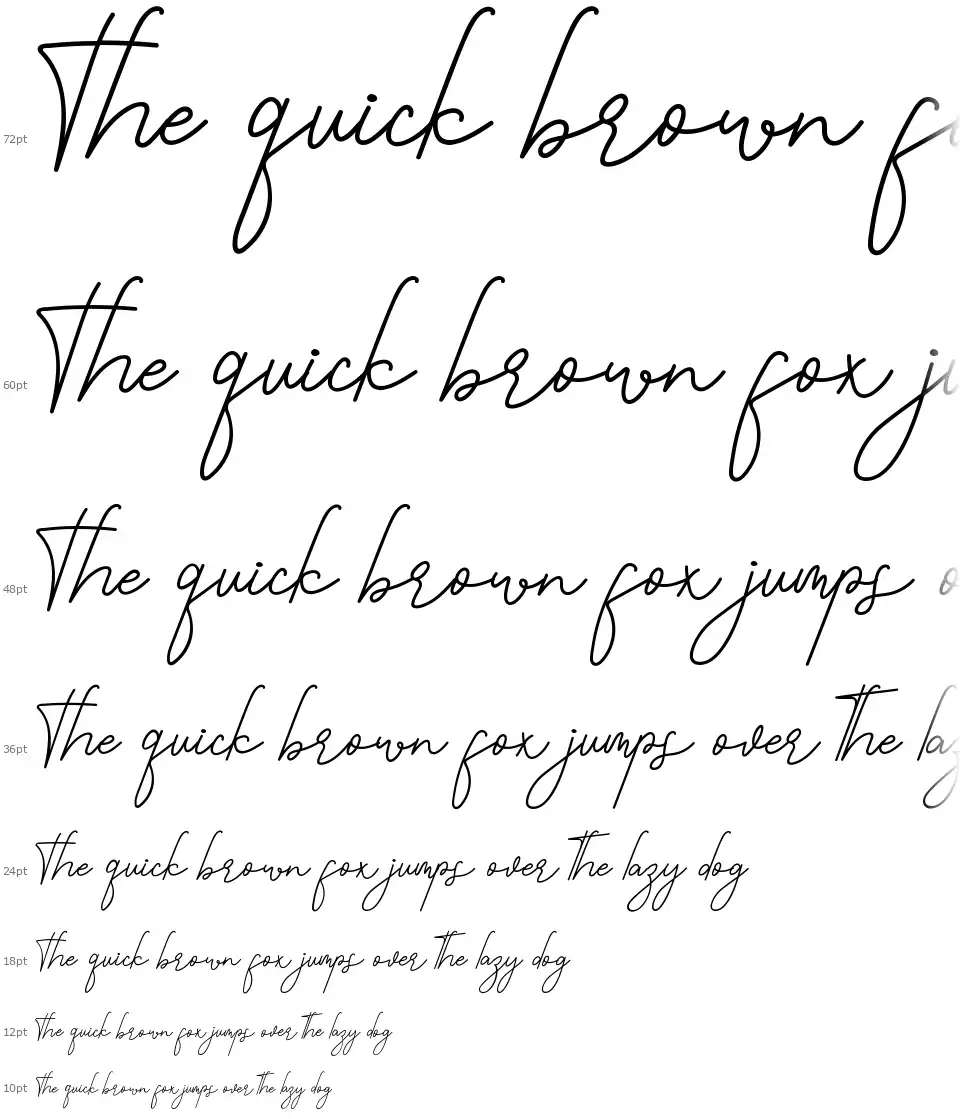 72pt The quick brown f
60pt The quick brown fox ju
48pt The quick brown fox jumps o
36pt The quick brown fox jumps over The laz
24pt The quick brown fox jumps over The lazy dog
18pt The quick brown fox jumps over The lazy dog
12pt The quick brown fox jumps over The lazy dog
10pt The quick brown fox jumps over The lazy dog